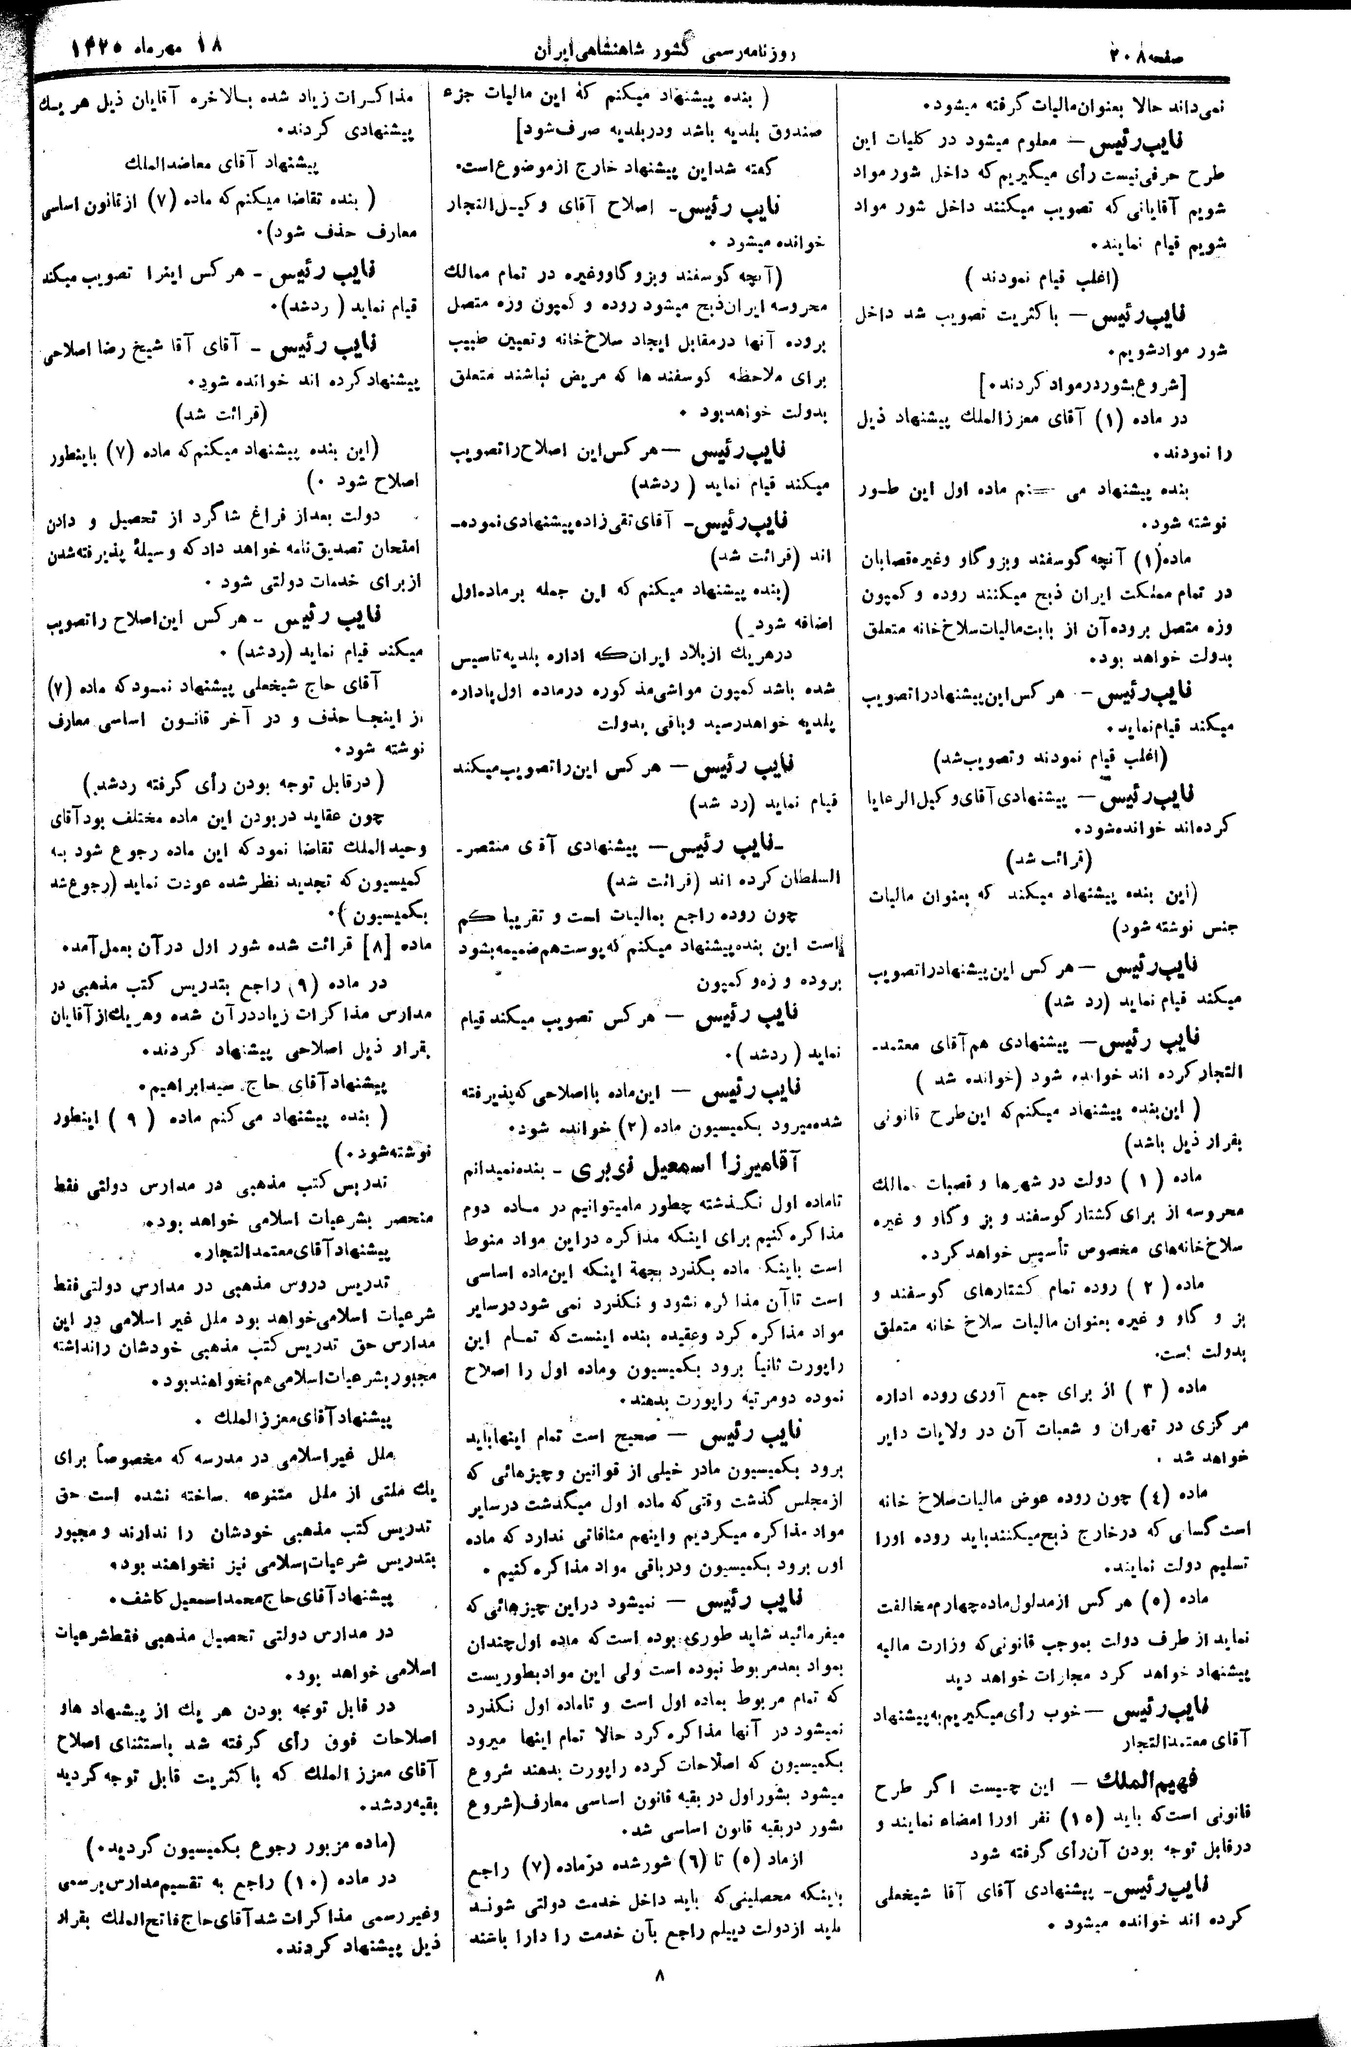 صفحه ۲۰۸
روزنامه رسمی کشور شاهنشاهی ایران
۱۸ مهر ماه ۱۳۲۵
نمی‌داند حالا بعنوان مالیات گرفته میشود.
نایب رئیس — معلوم میشود در کلیات این
طرح حرفی نیست رأی میگیریم که داخل شور مواد
شویم آقایانی که تصویب میکنند داخل شور مواد
شویم قیام نمایند.
(اغلب قیام نمودند )
نایب رئیس — باکثریت تصویب شد داخل
شور مواد شویم.
[شروع بشور در مواد کردند.]
در ماده (۱) آقای معززالملك پیشنهاد ذیل
را نمودند.
بنده پیشنهاد می کنم ماده اول این طـور
نوشته شود.
ماده (۱) آنچه گوسفند و بز و گاو و غیره قصابان
در تمام مملکت ایران ذبح میکنند روده و کمپون
وزه متصل بروده آن از بابت مالیات سلاخ خانه متعلق
بدولت خواهد بود.
نایب رئیس — هر کس این پیشنهاد را تصویب
میکند قیام نماید.
(اغلب قیام نمودند و تصویب شد)
نایب رئیس — پیشنهادی آقای وکیل الرعایا
کرده‌اند خوانده شود.
(قرائت شد)
(این بنده پیشنهاد میکند که بعنوان مالیات
جنس نوشته شود)
نایب رئیس — هر کس این پیشنهاد را تصویب
میکند قیام نماید (رد شد)
نایب رئیس — پیشنهادی هم آقای معتمد-
التجار کرده اند خوانده شود (خوانده شد )
( این بنده پیشنهاد میکنم که این طرح قانونی
بقرار ذیل باشد)
ماده ( ۱ ) دولت در شهرها و قصبات ممالك
محروسه از برای کشتار گوسفند و بز و گاو و غیره
سلاخ خانه‌های مخصوص تأسیس خواهد کرد.
ماده ( ۲ ) روده تمام کشتارهای گوسفند و
بز و گاو و غیره بعنوان مالیات سلاخ خانه متعلق
بدولت است.
ماده ( ۳ ) از برای جمع آوری روده اداره
مرکزی در تهران و شعبات آن در ولایات دایر
خواهد شد .
ماده (٤) چون روده عوض مالیات سلاخ خانه
است کسانی که در خارج ذبح میکنند باید روده اورا
تسلیم دولت نمایند.
ماده (٥) هر کس از مدلول ماده چهارم مخالفت
نماید از طرف دولت بموجب قانونی که وزارت مالیه
پیشنهاد خواهد کرد مجازات خواهد دید
نایب رئیس — خوب رأی میگیریم به پیشنهاد
آقای معتمدالتجار
فهیم الملك — این چیست اگر طرح
قانونی است که باید (۱٥) نفر اورا امضاء نمایند و
در قابل توجه بودن آن رأی گرفته شود
نایب رئیس- پیشنهادی آقای آقا شیخعلی
کرده اند خوانده میشود .
( بنده پیشنهاد میکنم که این مالیات جزء
صندوق بلدیه باشد و در بلدیه صرف شود]
گفته شد این پیشنهاد خارج از موضوع است.
نایب رئیس- اصلاح آقای وکیـل التجار
خوانده میشود .
(آنچه گوسفند و بز و گاو و غیره در تمام ممالك
محروسه ایران ذبح میشود روده و کمپون وزه متصل
بروده آنها در مقابل ایجاد سلاخ خانه و تعیین طبیب
برای ملاحظه گوسفند ها که مریض نباشند متعلق
بدولت خواهد بود .
نایب رئیس — هر کس این اصلاح را تصویب
میکند قیام نماید ( رد شد)
نایب رئیس- آقای تقی زاده پیشنهادی نموده-
اند (قرائت شد)
(بنده پیشنهاد میکنم که این جمله بر ماده اول
اضافه شود )
در هر یك از بلاد ایران که اداره بلدیه تاسیس
شده باشد کمپون مواشی مذکوره در ماده اول باداره
بلدیه خواهد رسید و باقی بدولت
نایب رئیس — هر کس این را تصویب میکند
قیام نماید (رد شد)
-نایب رئیس — پیشنهادی آقای منتصر-
السلطان کرده اند (قرائت شد)
چون روده راجع بمالیات است و تقریباً کم
است این بنده پیشنهاد میکنم که پوست هم ضمیمه بشود
بروده و زه و کمپون
نایب رئیس — هر کس تصویب میکند قیام
نماید ( رد شد ).
نایب رئیس — این ماده با اصلاحی که پذیرفته
شده میرود بکمیسیون ماده (۲) خوانده شود.
آقا میرزا اسمعیل نوبری - بنده نمیدانم
تا ماده اول نگـذشته چطور ما میتوانیم در مـاده دوم
مذاکره کنیم برای اینکه مذاکره در این مواد منوط
است باینکه ماده بگذرد بجهة اینکه این ماده اساسی
است تا آن مذاکره نشود و نگذرد نمی شود در سایر
مواد مذاکره کرد و عقیده بنده اینست که تمـام این
راپورت ثانیاً برود بکمیسیون و ماده اول را اصلاح
نموده دو مرتبه راپورت بدهند.
نایب رئیس — صحیح است تمام اینها باید
برود بکمیسیون ما در خیلی از قوانین و چیزهائی که
از مجلس گذشت وقتی که ماده اول میگذشت در سایر
مواد مذاکره میکردیم و اینهم منافاتی ندارد که ماده
اول برود بکمیسیون و در باقی مواد مذاکره کنیم .
نایب رئیس — نمیشود در این چیزهائی که
میفرمائید شاید طوری بوده است که ماده اول چندان
بمواد بعد مربوط نبوده است ولی این مواد بطوریست
که تمام مربوط بماده اول است و تا ماده اول نگذرد
نمیشود در آنها مذاکره کرد حالا تمام اینها میرود
بکمیسیون که اصلاحات کرده راپورت بدهند شروع
میشود بشور اول در بقیه قانون اساسی معارف (شروع
بشور در بقیه قانون اساسی شد.
از ماد (٥) تا (٦) شور شده در ماده (۷) راجع
باینکه محصلینی که باید داخل خدمت دولتی شونـد
باید از دولت دیپلم راجع بآن خدمت را دارا باشند
مذاکـرات زیاد شده بـالاخره آقایان ذیل هر یـك
پیشنهادی کردند.
پیشنهاد آقای معاضدالملك
( بنده تقاضا میکنم که ماده (۷) از قانون اساسی
معارف حذف شود).
نایب رئیس - هر کس اینرا تصویب میکند
قیام نماید ( رد شد).
نایب رئیس - آقای آقا شیخ رضا اصلاحی
پیشنهاد کرده اند خوانده شود.
(قرائت شد)
(این بنده پیشنهاد میکنم که ماده (۷) باینطور
اصلاح شود .)
دولت بعد از فراغ شاگرد از تحصیل و دادن
امتحان تصدیق نامه خواهد داد که وسیلهٔ پذیرفته شدن
از برای خدمات دولتی شود .
نایب رئیس - هر کس این اصلاح را تصویب
میکند قیام نماید (رد شد) .
آقای حاج شیخعلی پیشنهاد نمـود که ماده (۷)
از اینجـا حذف و در آخر قانـون اساسی معارف
نوشته شود.
( در قابل توجه بودن رأی گرفته رد شد.)
چون عقاید در بودن این ماده مختلف بود آقای
وحیدالملك تقاضا نمود که این ماده رجوع شود بـه
کمیسیون که تجدید نظر شده عودت نماید (رجوع شد
بکمیسیون ).
ماده [۸] قرائت شده شور اول در آن بعمل آمد.
در ماده (۹) راجع بتدریس کتب مذهبی در
مدارس مذاکرات زیاد در آن شده و هر یك از آقایان
بقرار ذیل اصلاحی پیشنهاد کردند.
پیشنهاد آقای حاج سید ابراهیم.
( بنده پیشنهاد می کنم ماده ( ۹ ) اینطور
نوشته شود.)
تدریس کتب مذهبی در مدارس دولتی فقط
منحصر بشرعیات اسلامی خواهد بود.
پیشنهاد آقای معتمدالتجار.
تدریس دروس مذهبی در مدارس دولتی فقط
شرعیات اسلامی خواهد بود ملل غیر اسلامی در این
مدارس حق تدریس کتب مذهبی خودشان را نداشته
مجبور بشرعیات اسلامی هم نخواهند بود.
پیشنهاد آقای معززالملك .
ملل غیر اسلامی در مدرسه که مخصوصاً برای
یك ملتی از ملل متنوعه ساخته نشده است حق
تدریس کتب مذهبی خودشان را ندارند و مجبور
بتدریس شرعیات اسلامی نیز نخواهند بود.
پیشنهاد آقای حاج محمد اسمعیل کاشف.
در مدارس دولتی تحصیل مذهبی فقط شرعیات
اسلامی خواهد بود.
در قابل توجه بودن هر یك از پیشنهاد ها و
اصلاحات فوق رأی گرفته شد باستثنای اصلاح
آقای معزز الملك که با کثریت قابل توجه گردید
بقیه رد شد.
(ماده مزبور رجوع بکمیسیون گردید.)
در ماده (۱۰) راجع به تقسیم مدارس برسمی
و غیر رسمی مذاکرات شد آقای حاج فاتح الملك بقرار
ذیل پیشنهاد کردند.
۸